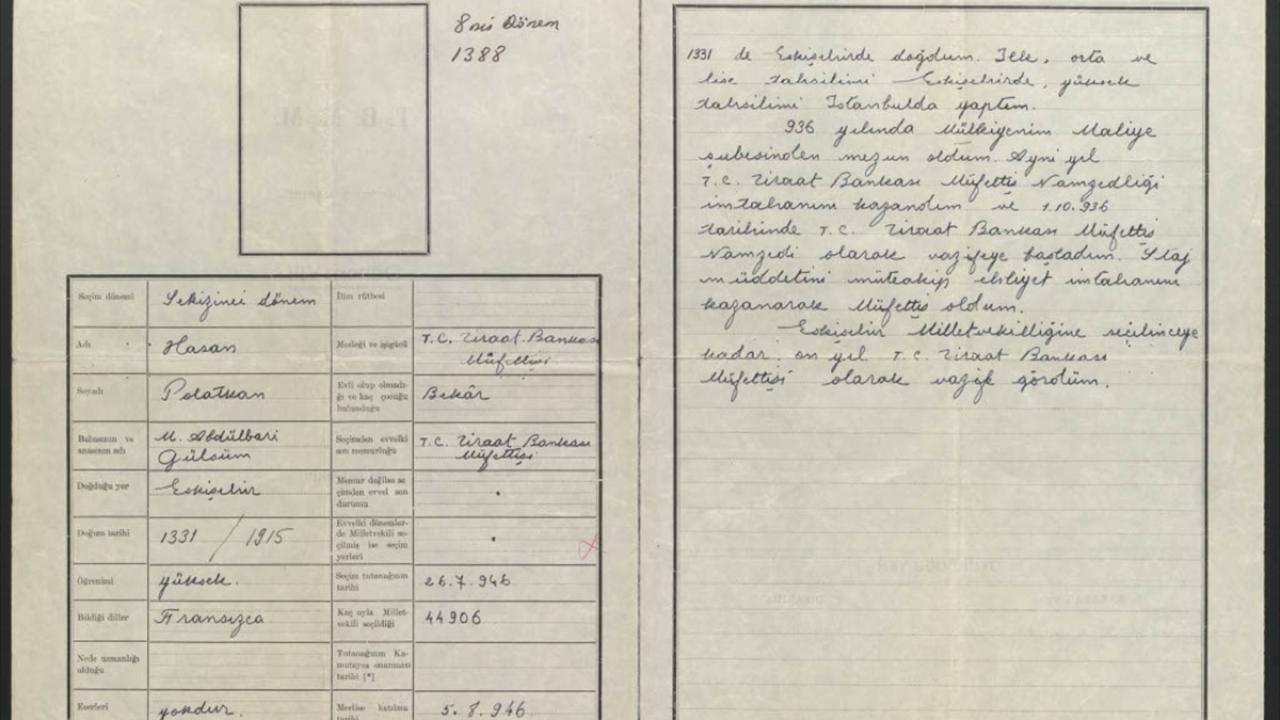 8nci Dönem
1388
Seçim dönemi Sekizinci dönem İlim rütbesi
Adı Hasan Mesleği ve işigücü T.C. Ziraat Bankası
Müfettişi
Soyadı Polatkan Evli olup olmadı-
ğı ve kaç çocuğu
bulunduğu Bekâr
Babasının ve
anasının adı M. Abdülbari
Gülsüm Seçimden evvelki
son memurluğu T.C. Ziraat Bankası
Müfettişi
Doğduğu yer Eskişehir Memur değilse se-
çimden evvel son
durumu
Doğum tarihi 1331 / 1915 Evvelki dönemler-
de Milletvekili se-
çilmiş ise seçim
yerleri
Öğrenimi yüksek. Seçim tutanağının
tarihi 26.7.946
Bildiği diller Fransızca Kaç oyla Millet-
vekili seçildiği 44906
Nede uzmanlığı
olduğu Tutanağının Ka-
mutayca onanması
tarihi [*]
Eserleri yokdur. Meclise katılma
tarihi 5.8.946
1331 de Eskişehirde doğdum. İlk, orta ve
lise tahsilimi Eskişehirde, yüksek
tahsilimi İstanbulda yaptım.
936 yılında Mülkiyenin Maliye
şubesinden mezun oldum. Ayni yıl
T.C. Ziraat Bankası Müfettiş Namzedliği
imtahanını kazandım ve 1.10.936
tarihinde T.C. Ziraat Bankası Müfettiş
Namzedi olarak vazifeye başladım. Staj
müddetini müteakip ehliyet imtahanını
kazanarak Müfettiş oldum.
Eskişehir Milletvekilliğine seçilinceye
kadar on yıl T.C. Ziraat Bankası
Müfettişi olarak vazife gördüm.